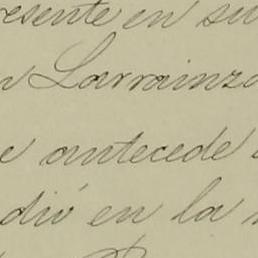 resente en su
n Larrainza
e antecede
dió en la